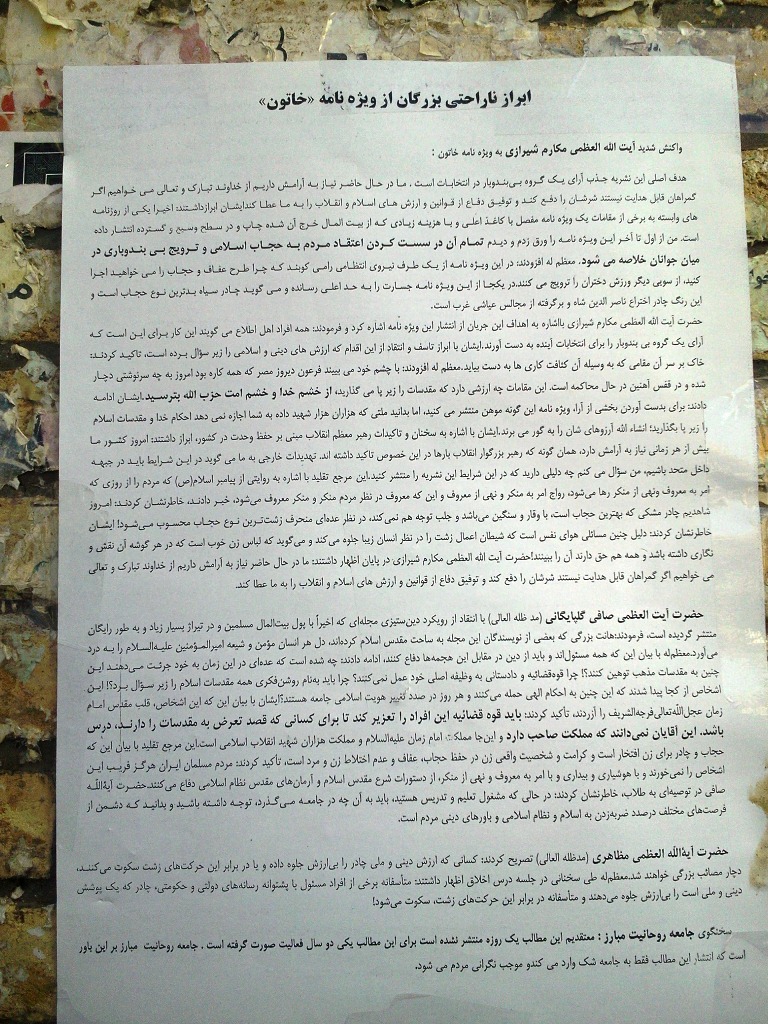 ابراز ناراحتی بزرگان از ویژه نامه «خاتون»
واکنش شدید آیت الله العظمی مکارم شیرازی به ویژه نامه خاتون :
هدف اصلی این نشریه جذب آرای یک گروه بی‌بندوبار در انتخابات است . ما در حال حاضر نیاز به آرامش داریم از خداوند تبارک و تعالی می خواهیم اگر
گمراهان قابل هدایت نیستند شرشان را دفع کند و توفیق دفاع از قوانین و ارزش های اسلام و انقلاب را به ما عطا کندایشان ابرازداشتند: اخیرا یکی از روزنامه
های وابسته به برخی از مقامات یک ویژه نامه مفصل با کاغذ اعلی و با هزینه زیادی که از بیت المال خرج آن شده چاپ و در سطح وسیع و گسترده انتشار داده
است. من از اول تا آخر این ویژه نامه را ورق زدم و دیدم تمام آن در سست کردن اعتقاد مردم به حجاب اسلامی و ترویج بی بندوباری در
میان جوانان خلاصه می شود. معظم له افزودند: در این ویژه نامه از یک طرف نیروی انتظامی رامی کوبند که چرا طرح عفاف و حجاب را می خواهید اجرا
کنید، از سویی دیگر ورزش دختران را ترویج می کنند.در یکجا از این ویژه نامه جسارت را به حد اعلی رسانده و می گوید چادر سیاه بدترین نوع حجاب است و
این رنگ چادر اختراع ناصر الدین شاه و برگرفته از مجالس عیاشی غرب است.
حضرت آیت الله العظمی مکارم شیرازی بااشاره به اهداف این جریان از انتشار این ویژه نامه اشاره کرد و فرمودند: همه افراد اهل اطلاع می گویند این کار برای این است که
آرای یک گروه بی بندوبار را برای انتخابات آینده به دست آورند.ایشان با ابراز تاسف و انتقاد از این اقدام که ارزش های دینی و اسلامی را زیر سؤال برده است، تاکید کردند:
خاک بر سر آن مقامی که به وسیله آن کثافت کاری ها به دست بیاید.معظم له افزودند: با چشم خود می بینند فرعون دیروز مصر که همه کاره بود امروز به چه سرنوشتی دچار
شده و در قفس آهنین در حال محاکمه است. این مقامات چه ارزشی دارد که مقدسات را زیر پا می گذارید، از خشم خدا و خشم امت حزب الله بترسید.ایشان ادامه
دادند: برای بدست آوردن بخشی از آرا، ویژه نامه این گونه موهن منتشر می کنید، اما بدانید ملتی که هزاران هزار شهید داده به شما اجازه نمی دهد احکام خدا و مقدسات اسلام
را زیر پا بگذارید؛ انشاء الله آرزوهای شان را به گور می برند.ایشان با اشاره به سخنان و تاکیدات رهبر معظم انقلاب مبنی بر حفظ وحدت در کشور، ابراز داشتند: امروز کشور ما
بیش از هر زمانی نیاز به آرامش دارد، همان گونه که رهبر بزرگوار انقلاب بارها در این خصوص تاکید داشته اند. تهدیدات خارجی به ما می گوید در این شرایط باید در جبهه
داخل متحد باشیم، من سؤال می کنم چه دلیلی دارید که در این شرایط این نشریه را منتشر کنید.این مرجع تقلید با اشاره به روایتی از پیامبر اسلام(ص) که مردم را از روزی که
امر به معروف ونهی از منکر رها می‌شود، رواج امر به منکر و نهی از معروف و این که معروف در نظر مردم منکر و منکر معروف می‌شود، خبر دادند، خاطرنشان کردند: امروز
شاهدیم چادر مشکی که بهترین حجاب است، با وقار و سنگین می‌باشد و جلب توجه هم نمی‌کند، در نظر عده‌ای منحرف زشت‌ترین نوع حجاب محسوب می‌شود! ایشان
خاطرنشان کردند: دلیل چنین مسائلی هوای نفس است که شیطان اعمال زشت را در نظر انسان زیبا جلوه می‌کند و می‌گوید که لباس زن خوب است که در هر گوشه آن نقش و
نگاری داشته باشد و همه هم حق دارند آن را ببینند!حضرت آیت الله العظمی مکارم شیرازی در پایان اظهار داشتند: ما در حال حاضر نیاز به آرامش داریم از خداوند تبارک و تعالی
می خواهیم اگر گمراهان قابل هدایت نیستند شرشان را دفع کند و توفیق دفاع از قوانین و ارزش های اسلام و انقلاب را به ما عطا کند.
حضرت آیت العظمی صافی گلپایگانی (مد ظله العالی) با انتقاد از رویکرد دین‌ستیزی مجله‌ای که اخیراً با پول بیت‌المال مسلمین و در تیراژ بسیار زیاد و به طور رایگان
منتشر گردیده است، فرمودند:هانت بزرگی که بعضی از نویسندگان این مجله به ساحت مقدس اسلام کرده‌اند، دل هر انسان مؤمن و شیعه امیرالمؤمنین علیه‌السلام را به درد
می‌آورد.معظم‌له با بیان این که همه مسئول‌اند و باید از دین در مقابل این هجمه‌ها دفاع کنند، ادامه دادند: چه شده است که عده‌ای در این زمان به خود جرئت می‌دهند این
چنین به مقدسات مذهب توهین کنند؟! چرا قوه‌قضائیه و دادستانی به وظیفه اصلی خود عمل نمی‌کنند؟ چرا باید به‌نام روشن‌فکری همه مقدسات اسلام را زیر سؤال برد؟! این
اشخاص از کجا پیدا شدند که این چنین به احکام الهی حمله می‌کنند و هر روز در صدد تغییر هویت اسلامی جامعه هستند؟ایشان با بیان این که این اشخاص، قلب مقدس امام
زمان عجل‌الله‌تعالی‌فرجه‌الشریف را آزردند، تأکید کردند: باید قوه قضائیه این افراد را تعزیر کند تا برای کسانی که قصد تعرض به مقدسات را دارند، درس
باشد. این آقایان نمی‌دانند که مملکت صاحب دارد و این‌جا مملکت امام زمان علیه‌السلام و مملکت هزاران شهید انقلاب اسلامی است.این مرجع تقلید با بیان این که
حجاب و چادر برای زن افتخار است و کرامت و شخصیت واقعی زن در حفظ حجاب، عفاف و عدم اختلاط زن و مرد است، تأکید کردند: مردم مسلمان ایران هرگز فریب این
اشخاص را نمی‌خورند و با هوشیاری و بیداری و با امر به معروف و نهی از منکر، از دستورات شرع مقدس اسلام و آرمان‌های مقدس نظام اسلامی دفاع می‌کنند.حضرت آیةاللّه
صافی در توصیه‌ای به طلاب، خاطرنشان کردند: در حالی که مشغول تعلیم و تدریس هستید، باید به آن چه در جامعه می‌گذرد، توجه داشته باشید و بدانید که دشمن از
فرصت‌های مختلف درصدد ضربه‌زدن به اسلام و نظام اسلامی و باورهای دینی مردم است.
حضرت آیةاللّه العظمی مظاهری (مدظله العالی) تصریح کردند: کسانی که ارزش دینی و ملی چادر را بی‌ارزش جلوه داده و یا در برابر این حرکت‌های زشت سکوت می‌کنند،
دچار مصائب بزرگی خواهند شد.معظم‌له طی سخنانی در جلسه درس اخلاق اظهار داشتند: متأسفانه برخی از افراد مسئول با پشتوانه رسانه‌های دولتی و حکومتی، چادر که یک پوشش
دینی و ملی است را بی‌ارزش جلوه می‌دهند و متأسفانه در برابر این حرکت‌های زشت، سکوت می‌شود!
سخنگوی جامعه روحانیت مبارز : معتقدیم این مطالب یک روزه منتشر نشده است برای این مطالب یکی دو سال فعالیت صورت گرفته است . جامعه روحانیت مبارز بر این باور
است که انتشار این مطالب فقط به جامعه شک وارد می کندو موجب نگرانی مردم می شود.